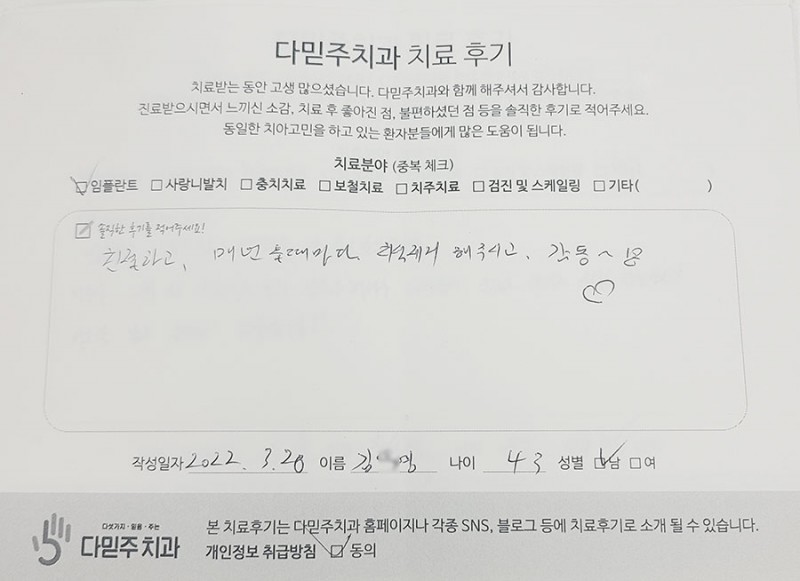 다믿주치과 치료 후기
치료받는 동안 고생 많으셨습니다. 다믿주치과와 함께 해주셔서 감사합니다.
진료받으시면서 느끼신 소감, 치료 후 좋아진 점, 불편하셨던 점 등을 솔직한 후기로 적어주세요.
동일한 치아고민을 하고 있는 환자분들에게 많은 도움이 됩니다.
치료분야 (중복 체크)
임플란트 사랑니발치 충치치료 보철치료 치주치료 검진 및 스케일링 기타( )
솔직한 후기를 적어주세요!
친절하고, 매년 올때마다 해주시고, 감동~
작성일자 2022. 3. 28 이름 김 나이 43 성별 남 여
다섯가지·믿음·주는
다믿주치과
본 치료후기는 다믿주치과 홈페이지나 각종 SNS, 블로그 등에 치료후기로 소개 될 수 있습니다.
개인정보 취급방침 동의